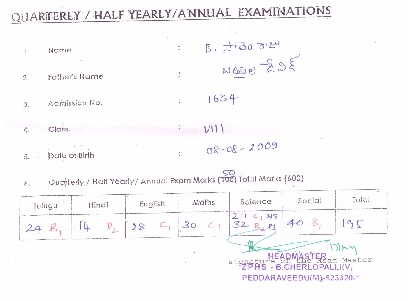 QUARTERLY / HALF YEARLY/ANNUAL EXAMINATIONS
1. Name :
2. Father's Name :
3. Admission No. : 1634
4. Class : VIII
5. Date of Birth : 08-08-2009
6. Quarterly / Half Yearly/ Annual Exam Marks (100) 50 Total Marks (600)
Telugu Hindi English Maths Science Social Total
24 14 28 C1 30 C1 32 40 B1 195
Signature of the Head Master
HEADMASTER
ZPHS - B.CHERLOPALLI(V),
PEDDARAVEEDU(M)-523320